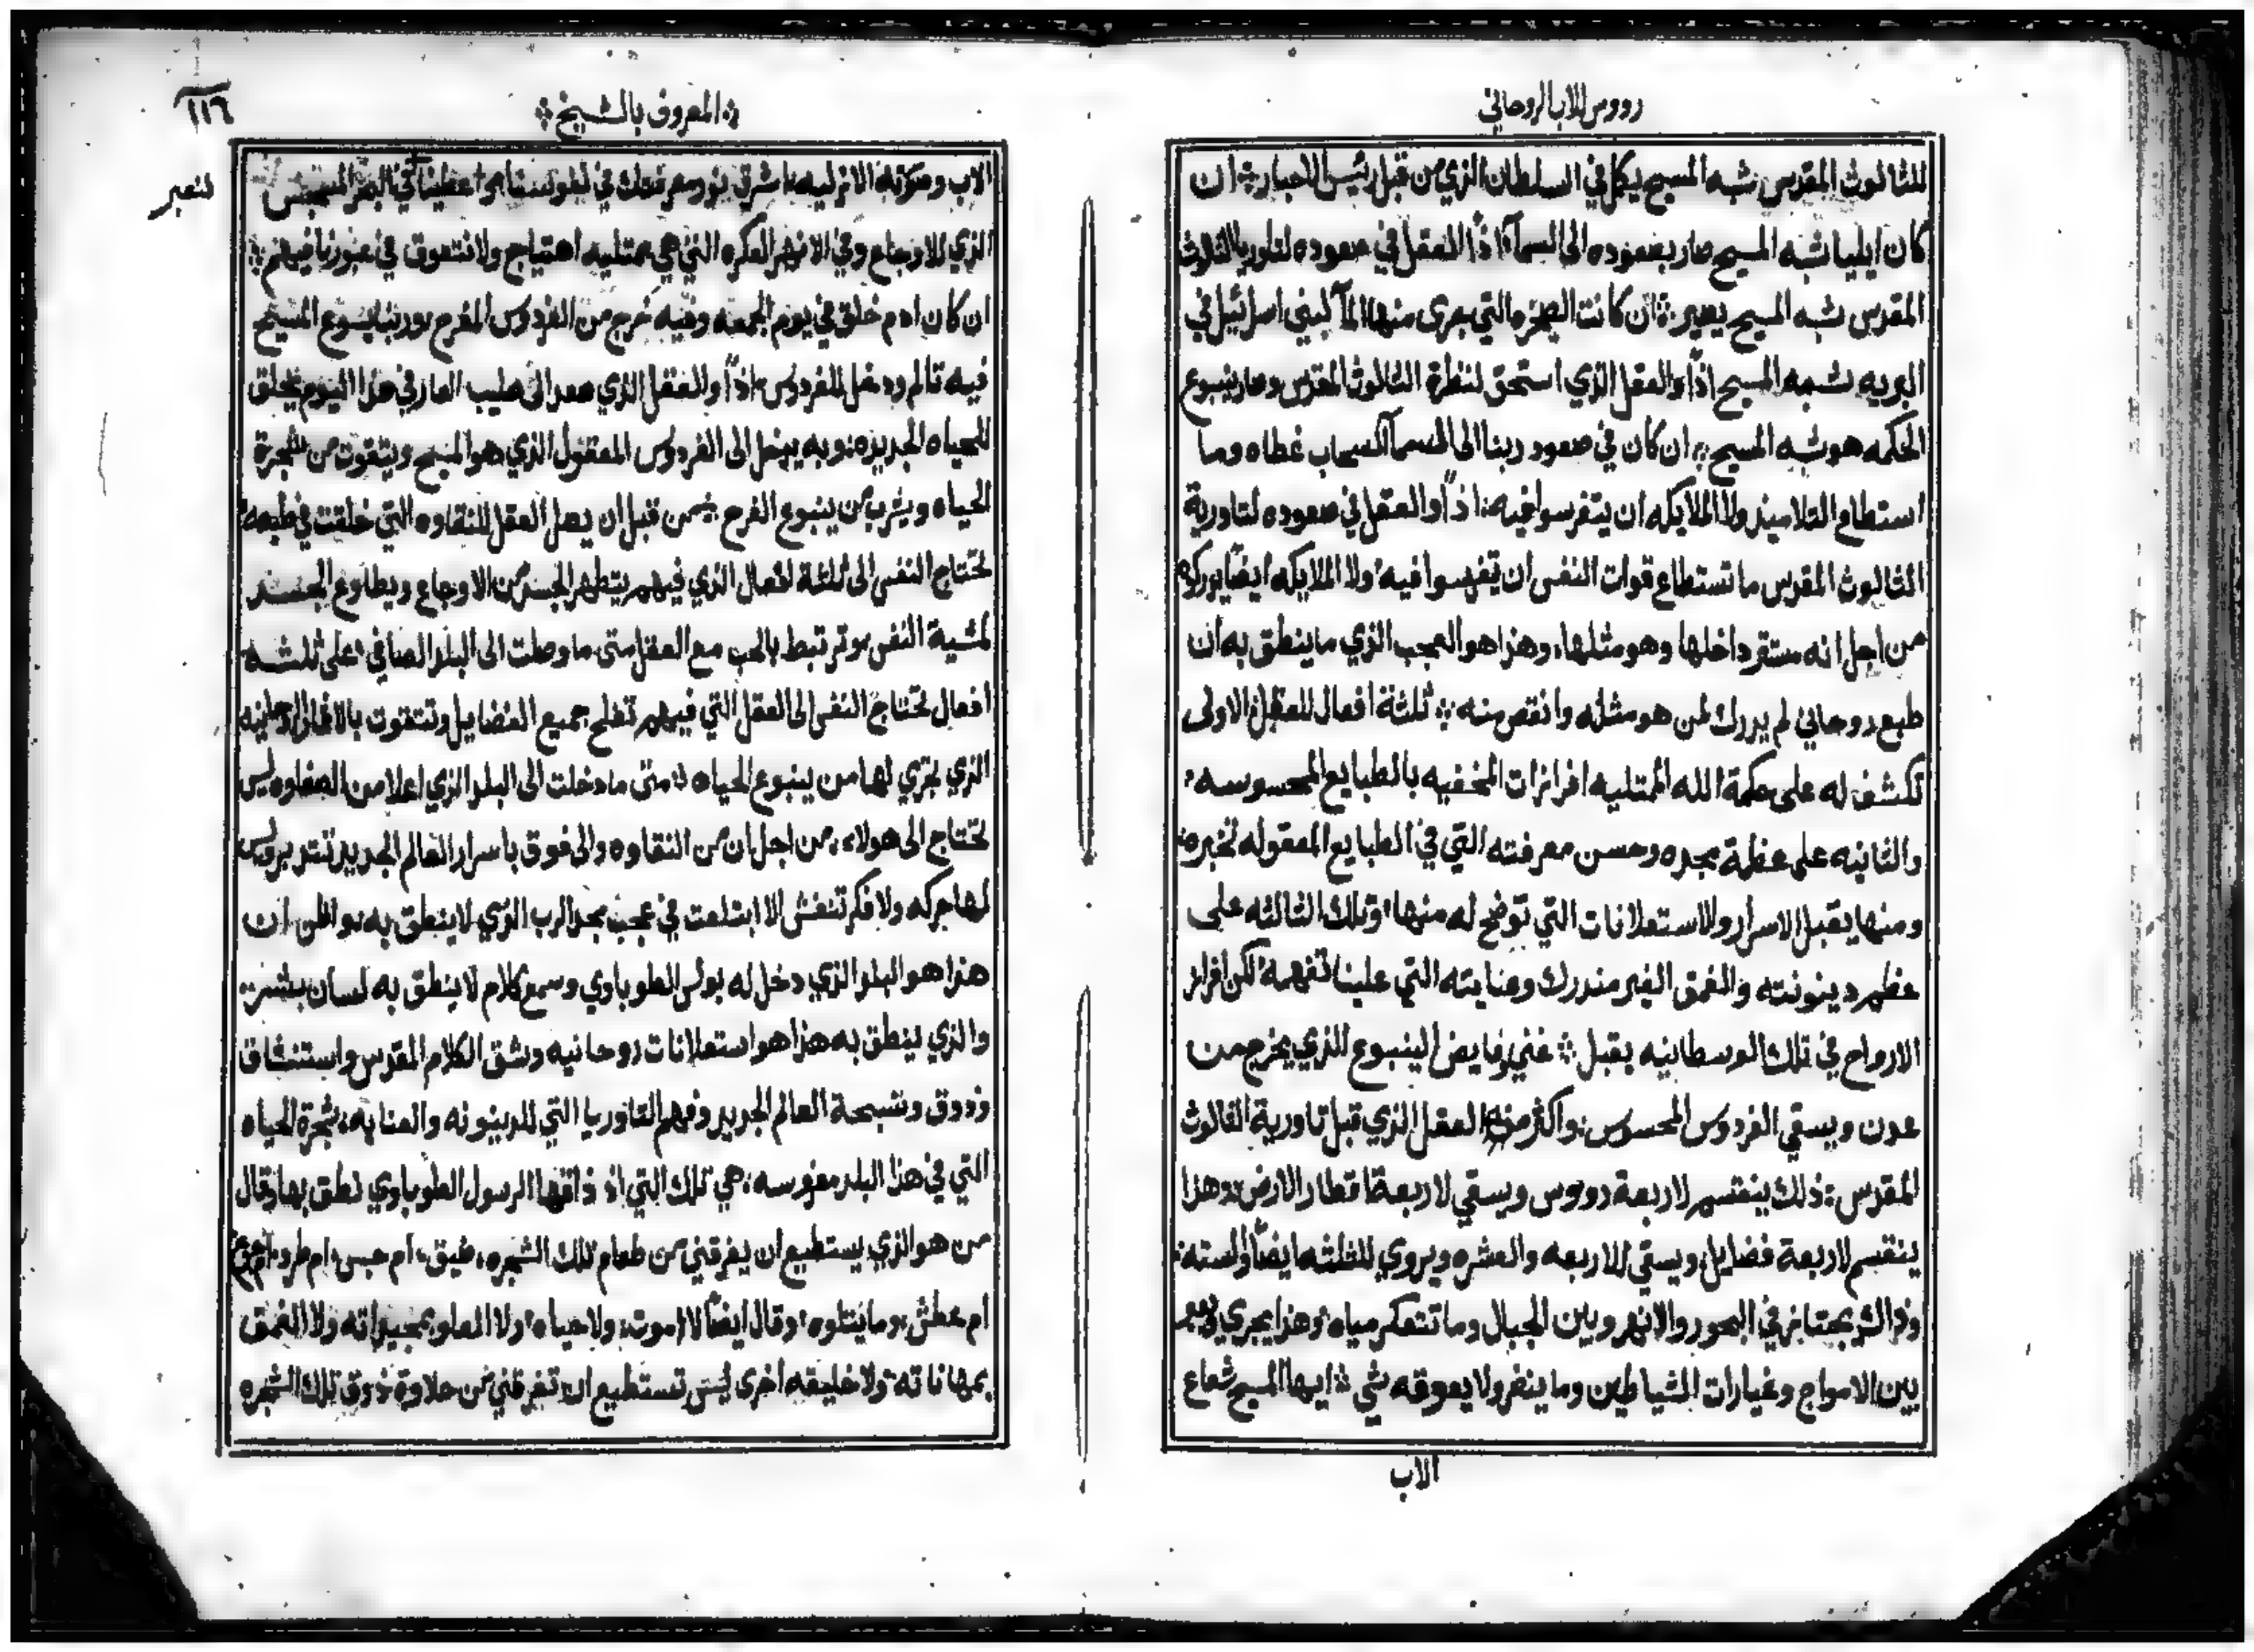 رووس للاب الروحاني
للثالوث المقدس شبه المسيح يكمل في السلطان الذي من قبل رئيس الاحبار ❖ ان
كان ايليا شبه المسيح صار بصعوده الى السما اذًا العقل في صعوده لتاوريا الثالوث
المقدس شبه المسيح يصير ❖ ان كانت الصخره التي جرى منها المآ لبني اسرائيل في
البريه تشبه المسيح اذًا والعقل الذي استحق لنظرة الثالوث المقدس وصار ينبوع
الحكمه هو شبه المسيح ❖ ان كان في صعود ربنا الى السمآ السحاب غطاه وما
استطاع التلاميذ ولا الملايكه ان يتفرسوا فيه اذًا والعقل في صعوده لتاورية
الثالوث المقدس ما تستطاع قوات النفس ان يتفرسوا فيه ولا الملايكه ايضًا يدركوه
من اجل انه مستقر داخلها وهو مثلها، وهذا هو العجب الذي ما ينطق به ان
طبع روحاني لم يدرك لمن هو مثله وانقص منه ❖ ثلثة افعال للعقل الاولى
تكشف له على حكمة الله الممتليه افرازات المخفيه بالطبايع المحسوسه
والثانيه على عظمة مجده وحسن معرفته التي في الطبايع المعقوله تخبره
ومنها يقبل الاسرار والاستعلانات التي توضح له منها، وتلك الثالثه على
عظم دينونته والغمق الغير مندرك وعنايته التي علينا تفهمه لكن افراز
الارواح في تلك الوسطانيه يقبل ❖ غني وفايض الينبوع الذي يخرج من
عدن ويسقي الفردوس المحسوس واكثر منه العقل الذي قبل تاورية الثالوث
المقدس ذلك ينقسم لاربعة رووس ويسقي لاربعة اقطار الارض وهذا
ينقسم لاربعة فضايل ويسقي للاربعه والعشره ويروي للثلثه ايضًا والسته
وذاك يجتاز في البحور والانهر وبين الجبال وما تتعكر مياه وهذا يجري
بين الامواج وغيارات الشياطين وما ينضر ولا يعوقه شي ❖ ايها المسيح شعاع
الاب
❖ المعروف بالشيخ ❖
١١٦
الاب الازليه اشرق بنور معرفتك في اعطينا في البحر
الذي للاوجاع وفي الانهر العكره التي هي ممتليه اهتياج ولا نتعوق في عبورنا فيهم ❖
ان كان ادم خلق في يوم الجمعه وفيه خرج من الفردوس المفرح وربنا يسوع المسيح
فيه تالم ودخل للفردوس اذًا والعقل الذي صعد الى صليب العار في هذا اليوم يخلق
للحياه الجديده وبه يدخل الى الفردوس المعقول الذي هو المسيح ويتقوت من شجرة
الحياه ويشرب من ينبوع الفرح ❖ من قبل ان يصل العقل للنقاوه التي خلقت في طبعه
تحتاج النفس الى ثلثة افعال الذي فيهم يتطهر الجسد من الاوجاع ويطاوع الجسد
لمشية النفس وترتبط بالحب مع العقل متى ما وصلت الى البلد الصافي على ثلثه
افعال تحتاج النفس الى العقل التي فيهم تفلح جميع الفضايل وتتقوت بالافكار الروحانيه
الذي تجري لها من ينبوع الحياه متى ما دخلت الى البلد الذي اعلا من الصفاوه ليس
تحتاج الى هولاء، من اجل ان من النقاوه والى فوق باسرار العالم الجديد تتدبر وليس
لها حركه ولا فكر تنغش الا ابتلعت في عجب مجد الرب الذي لا ينطق به واظن ان
هذا هو البلد الذي دخل له بولس الطوباوي وسمع كلام لا ينطق به لسان بشر
والذي ينطق به هذا هو استعلانات روحانيه ونشق الكلام المقدس واستنشاق
وذوق وتسبحة العالم الجديد وفهم التاوريا التي للدينونه والعنايه شجرة الحياه
التي في هذا البلد مغروسه هي تلك التي اذ ذاقها الرسول الطوباوي نطق بها وقال
من هو الذي يستطيع ان يفرقني من طعام تلك الشجره، ضيق، ام حبس، ام طرد، ام جوع
ام عطش، وما يتلوه، وقال ايضًا لا موت، ولا حياه، ولا العلو ولا الغمق
ولا خليقه اخرى ليس تستطيع ان تفرقني من حلاوة ذوق تلك الشجره